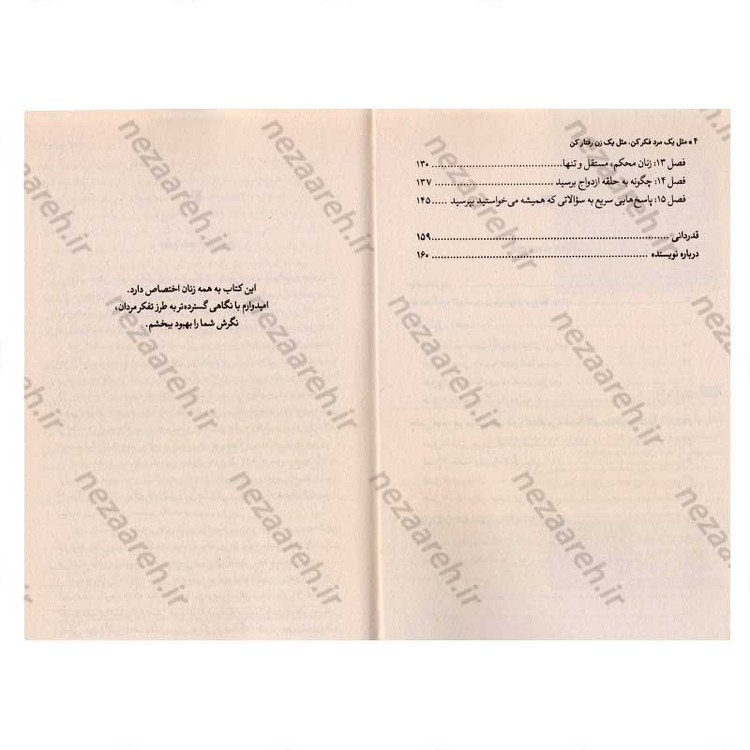 ۴ ▪ مثل یک مرد فکر کن، مثل یک زن رفتار کن
فصل ۱۳: زنان محکم، مستقل و تنها .......... ۱۳۰
فصل ۱۴: چگونه به حلقه ازدواج برسید .......... ۱۳۷
فصل ۱۵: پاسخ‌هایی سریع به سؤالاتی که همیشه می‌خواستید بپرسید ..... ۱۴۵
قدردانی .......... ۱۵۹
درباره نویسنده .......... ۱۶۰
این کتاب به همه زنان اختصاص دارد.
امیدوارم با نگاهی گسترده‌تر به طرز تفکر مردان،
نگرش شما را بهبود ببخشم.
nezaareh.ir
nezaareh.ir
nezaareh.ir
nezaareh.ir
nezaareh.ir
nezaareh.ir
nezaareh.ir